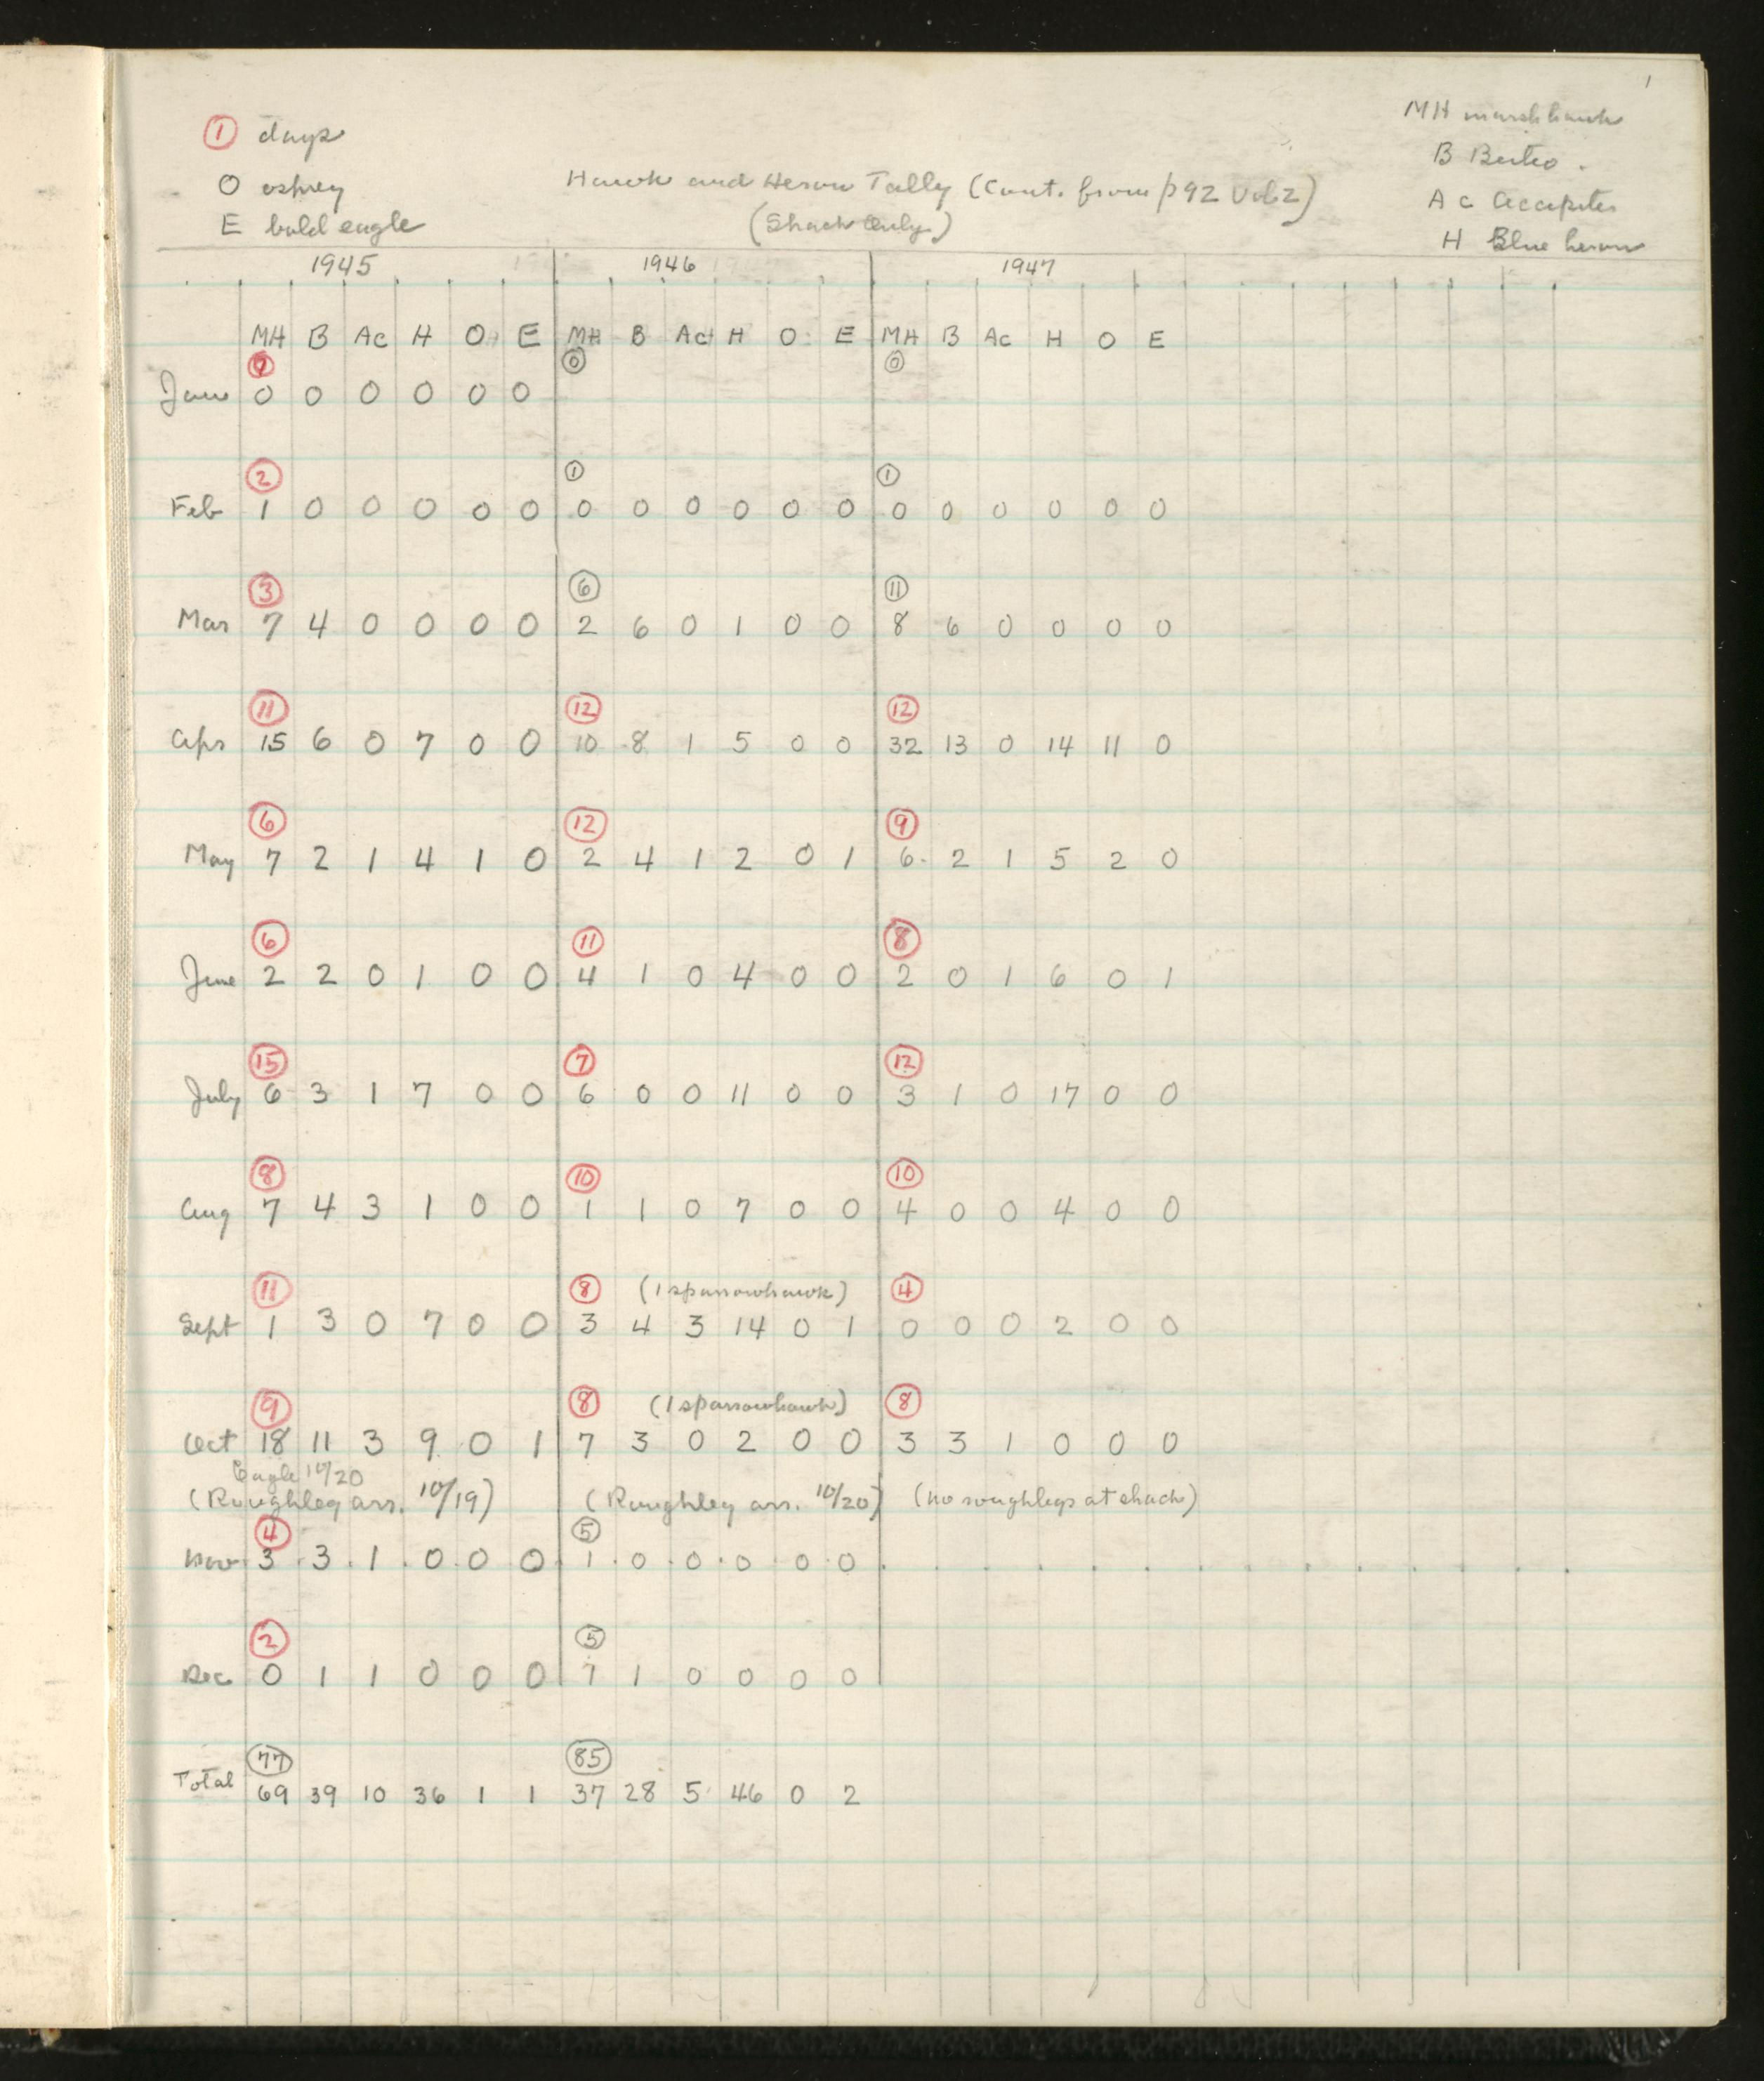 1
① days
O osprey
E bald eagle
Hawk and Heron Tally (Cont. from p 92 Vol 2)
(Shack Only)
MH marsh hawk
B Buteo.
Ac Accipiter
H Blue heron
1945 1946 1947
MH B Ac H O E MH B Ac H O E MH B Ac H O E
⓪ ⓪
Jan 0 0 0 0 0 0
② ① ①
Feb 1 0 0 0 0 0 0 0 0 0 0 0 0 0 0 0 0 0
③ ⑥ ⑪
Mar 7 4 0 0 0 0 2 6 0 1 0 0 8 6 0 0 0 0
⑪ ⑫ ⑫
Apr 15 6 0 7 0 0 10 8 1 5 0 0 32 13 0 14 11 0
⑥ ⑫ ⑨
May 7 2 1 4 1 0 2 4 1 2 0 1 6 2 1 5 2 0
⑥ ⑪ ⑧
June 2 2 0 1 0 0 4 1 0 4 0 0 2 0 1 6 0 1
⑮ ⑦ ⑫
July 6 3 1 7 0 0 6 0 0 11 0 0 3 1 0 17 0 0
⑧ ⑩ ⑩
Aug 7 4 3 1 0 0 1 1 0 7 0 0 4 0 0 4 0 0
⑪ ⑧ (1 sparrowhawk) ④
Sept 1 3 0 7 0 0 3 4 3 14 0 1 0 0 0 2 0 0
⑨ ⑧ (1 sparrowhawk) ⑧
Oct 18 11 3 9 0 1 7 3 0 2 0 0 3 3 1 0 0 0
Eagle 10/20
(Roughleg arr. 10/19) (Roughleg arr. 10/20) (no roughlegs at shack)
④ ⑤
Nov 3 3 1 0 0 0 1 0 0 0 0 0
② ⑤
Dec 0 1 1 0 0 0 1 1 0 0 0 0
(77) (85)
Total 69 39 10 36 1 1 37 28 5 46 0 2